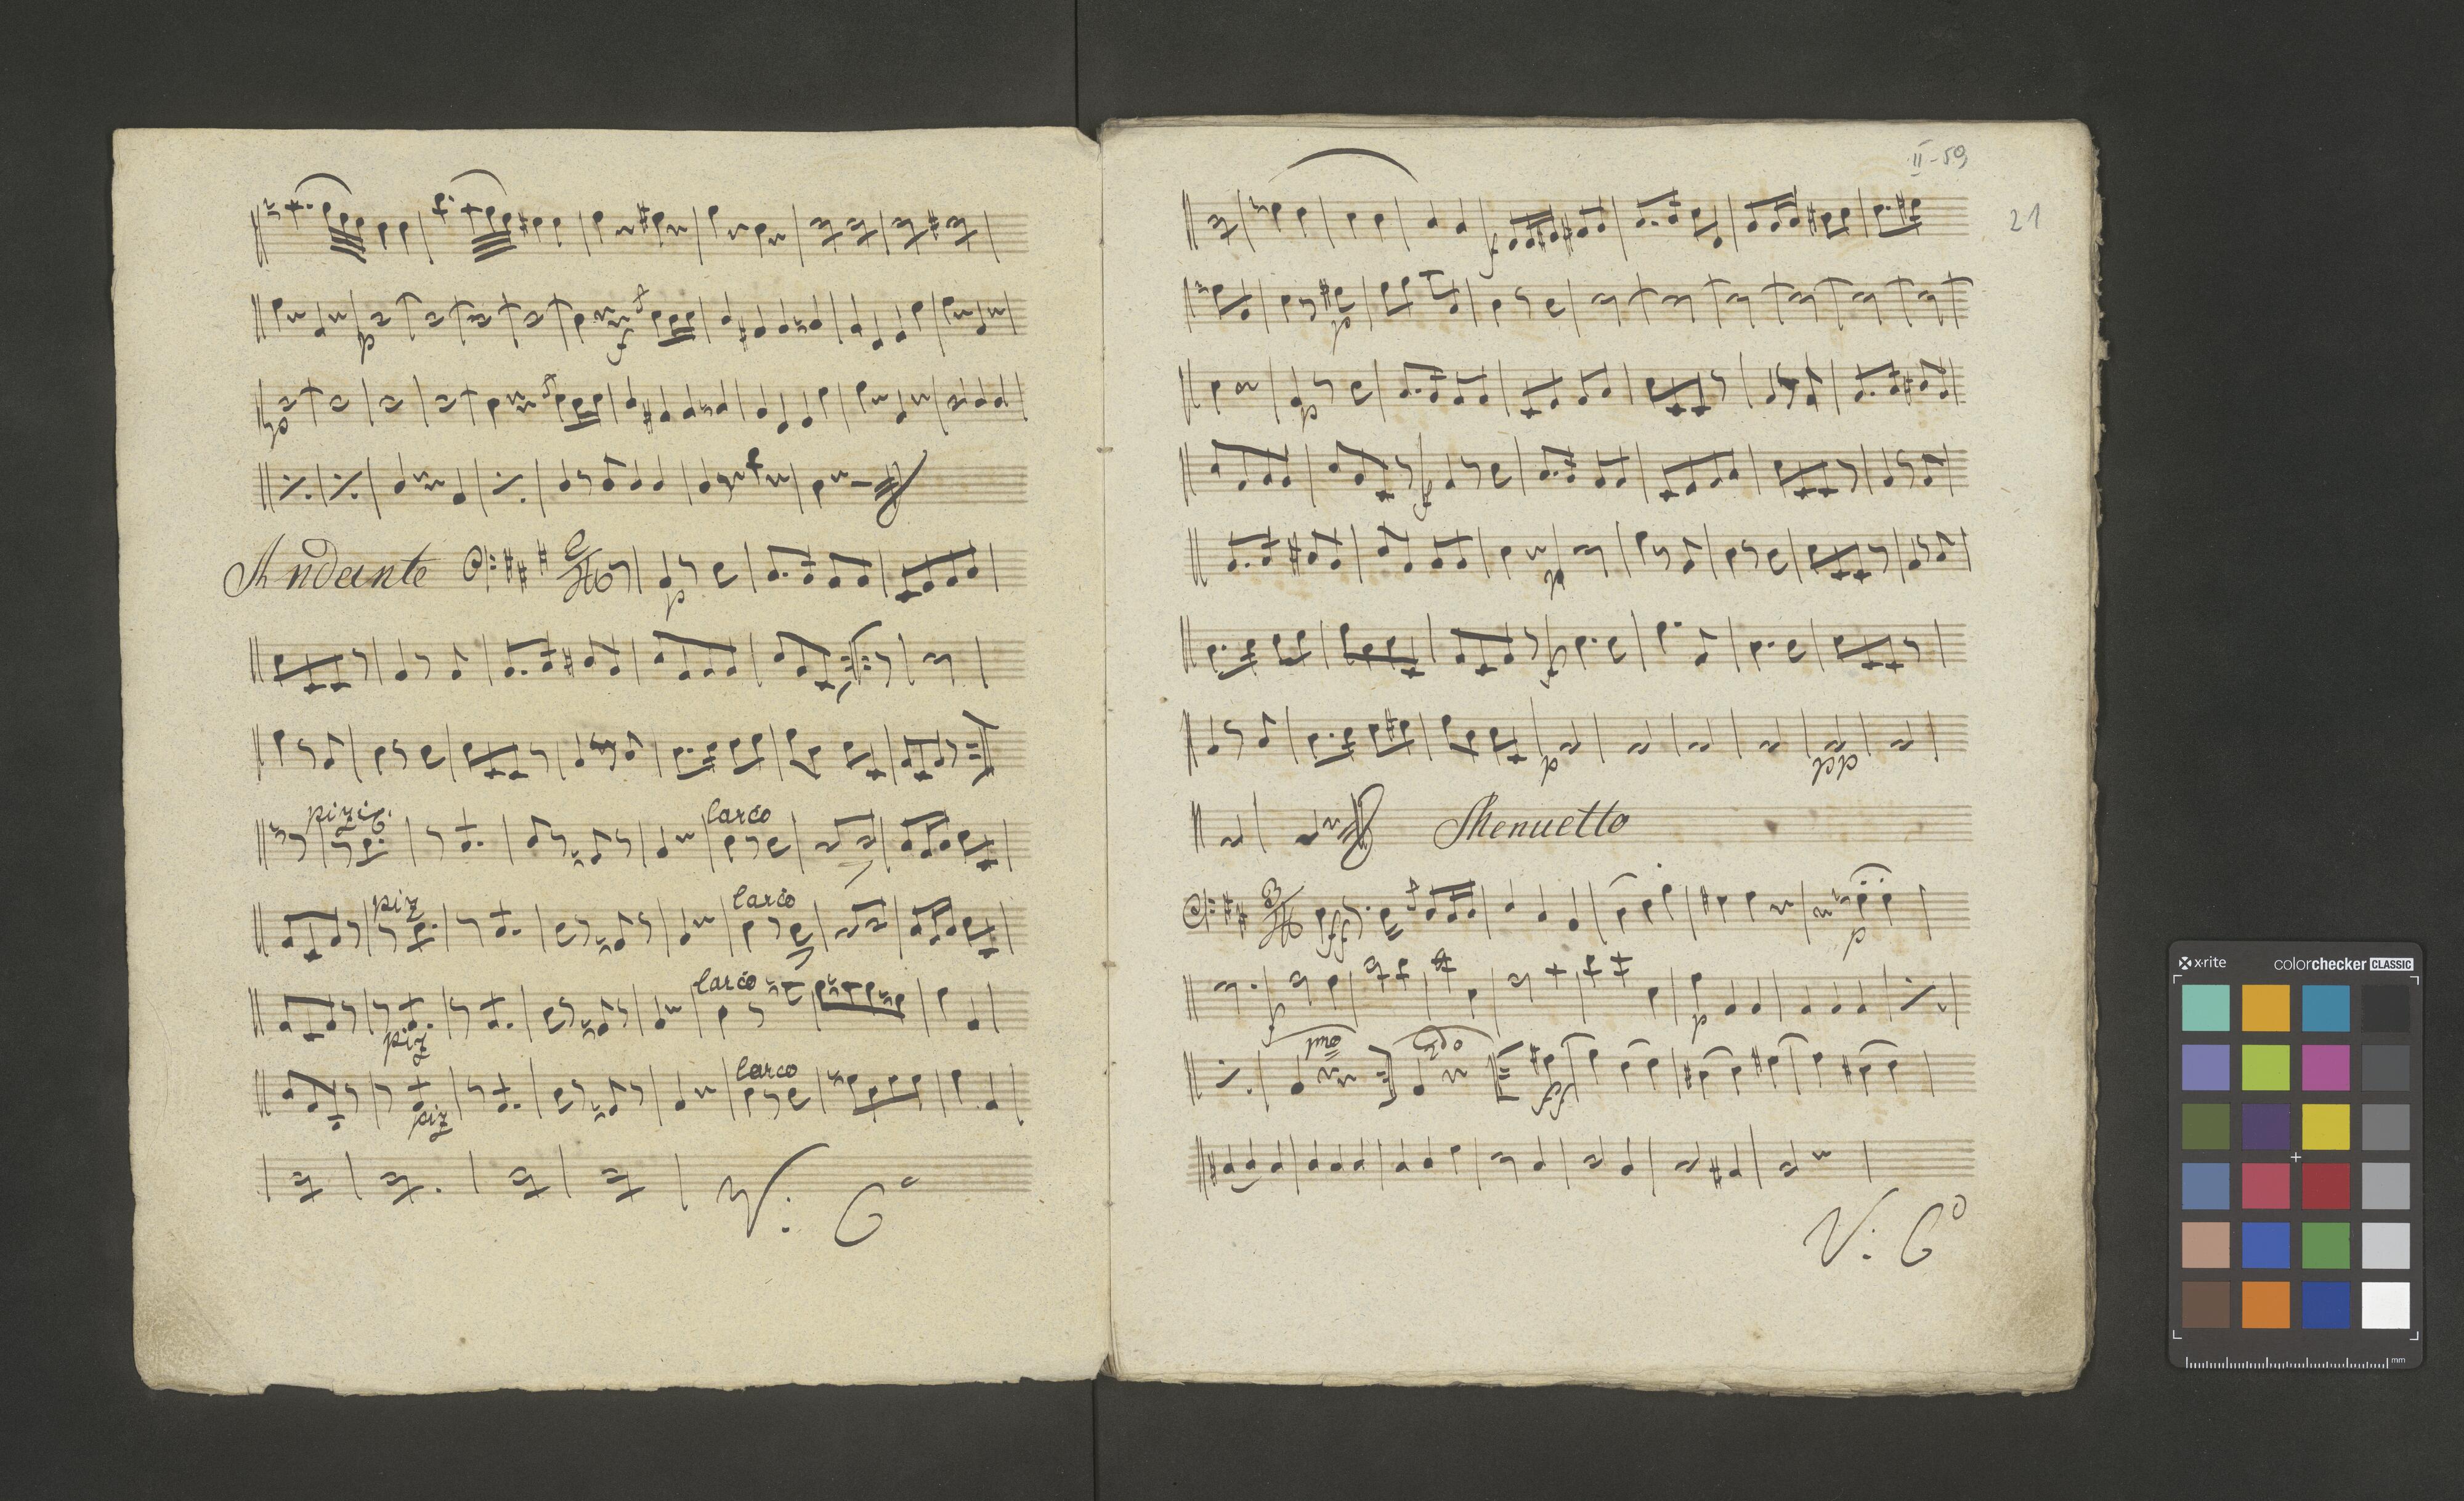 p f
p f
Andante 2/4 p
pizic. l'arco
piz l'arco
l'arco
piz
l'arco
piz
V: S°
II-59
21
f
p
p
f
p
f
p pp
Menuetto
3/4 ff f p
f p
1mo 2do ff
V: S°
x-rite colorchecker CLASSIC
mm